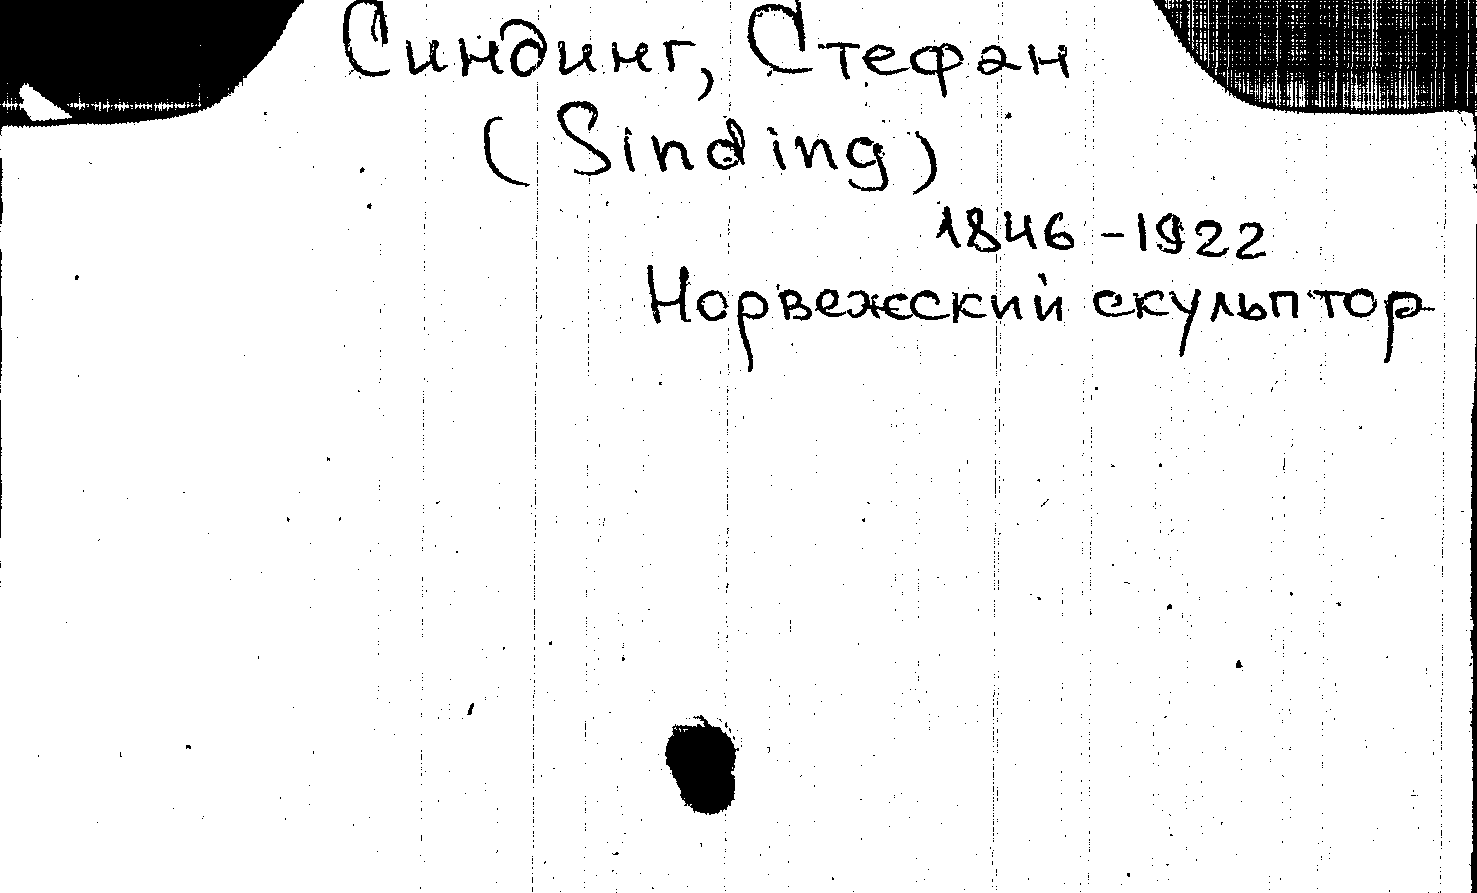 Синдинг, Стефан
(Sinding)
1846-1922
Норвежский скульптор